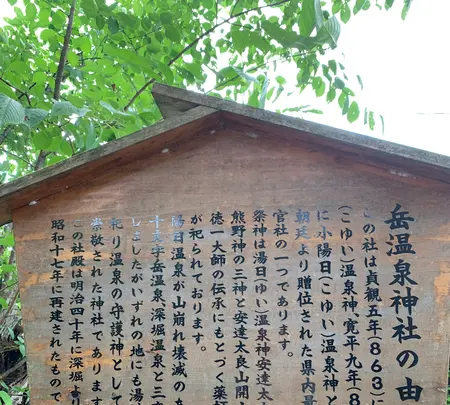 岳温泉神社の由
この社は貞観五年(863)に
(こゆい)温泉神、寛平九年(8
に小陽日(こゆい)温泉神と
朝廷より贈位された県内最
官社の一つであります。
祭神は湯日(ゆい)温泉神安達太
熊野神の三神と安達太良山開
徳一大師の伝承にもとづく薬師
が祀られております。
湯日温泉が山崩れ壊滅のあ
十文字岳温泉、深堀温泉と三
しましたがいずれの地にも湯
祀り温泉の守護神として
崇敬された神社であります
この社殿は明治四十年に深堀
昭和十七年に再建されたもので